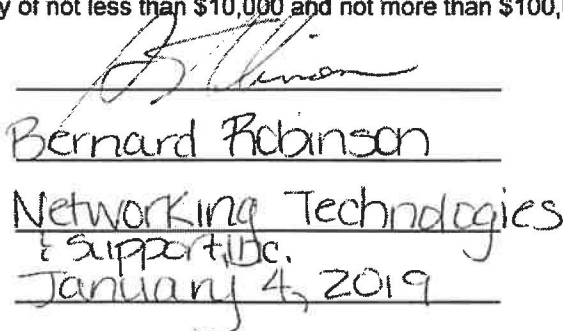 y of not less than $10,000 and not more than $100,
Bernard Robinson
Networking Technologies
& Support, Inc.
January 4, 2019